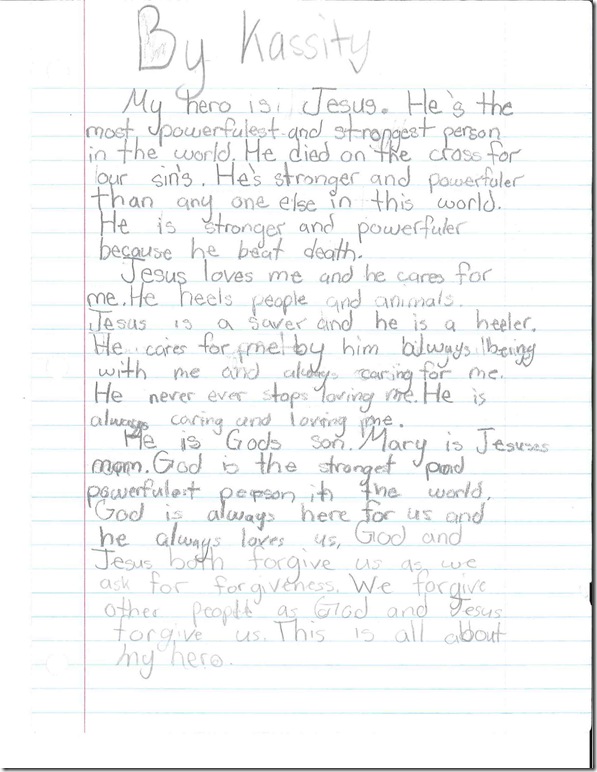 By Kassity
My hero is Jesus. He's the
most powerfulest and strongest person
in the world. He died on the cross for
our sin's. He's stronger and powerfuler
than any one else in this world.
He is stronger and powerfuler
because he beat death.
Jesus loves me and he cares for
me. He heels people and animals.
Jesus is a saver and he is a heeler.
He cares for me by him always being
with me and always caring for me.
He never ever stops loving me. He is
always caring and loving me.
He is Gods son. Mary is Jesuses
mom. God is the strongest and
powerfulest person in the world.
God is always here for us and
he always loves us, God and
Jesus both forgive us as we
ask for forgiveness. We forgive
other people as God and Jesus
forgive us. This is all about
my hero.